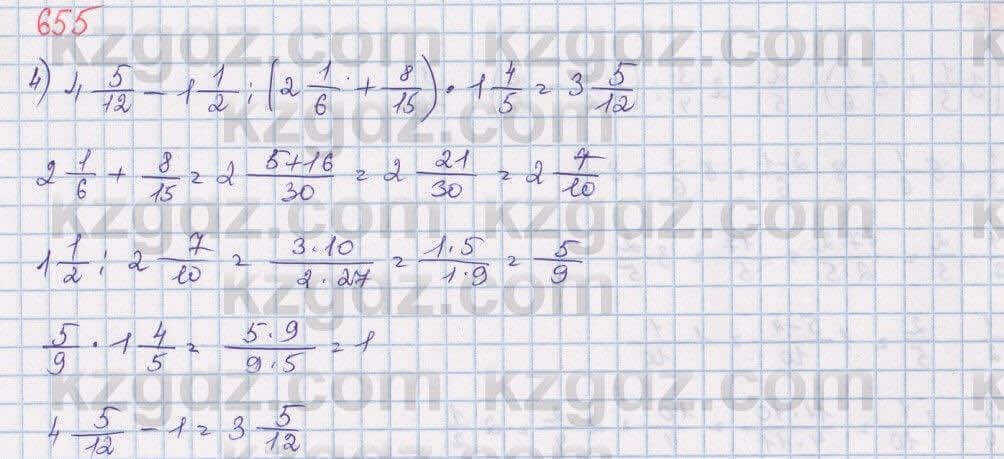 655
kzgdz.com kzgdz.com
4) 4 5/12 - 1 1/2 : (2 1/6 + 8/15) · 1 4/5 = 3 5/12
kzgdz.com
2 1/6 + 8/15 = 2 5+16/30 = 2 21/30 = 2 7/10
kzgdz.com kzgdz.com
1 1/2 : 2 7/10 = 3·10/2·27 = 1·5/1·9 = 5/9
kzgdz.com
5/9 · 1 4/5 = 5·9/9·5 = 1
kzgdz.com kzgdz.com
4 5/12 - 1 = 3 5/12